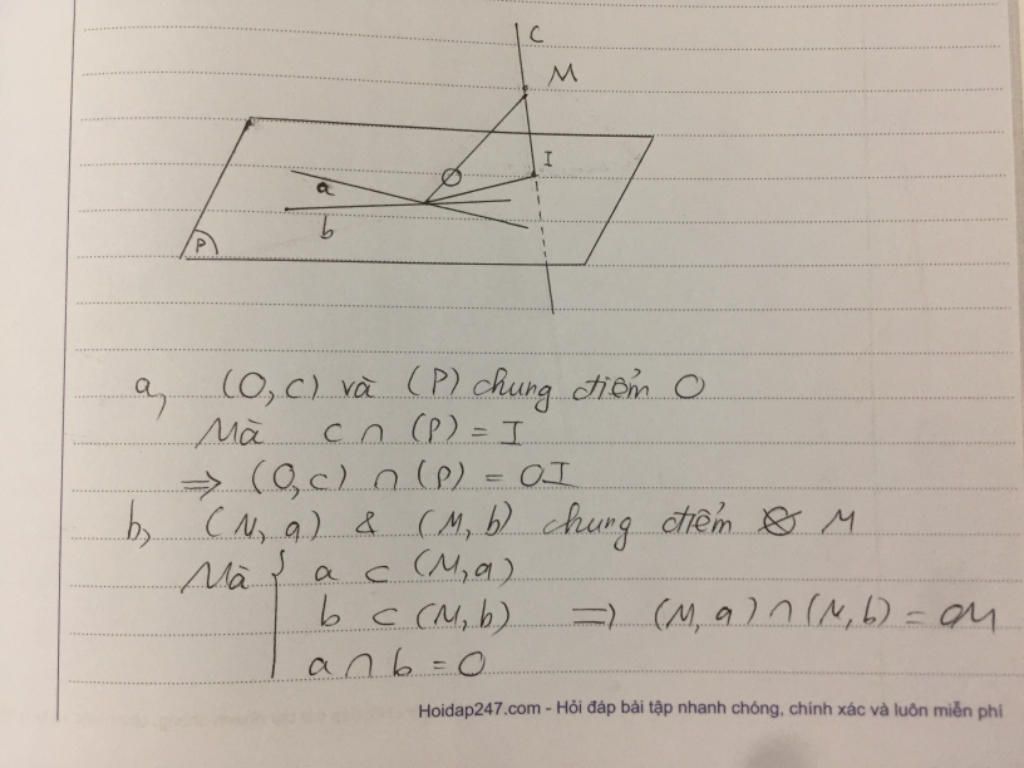 C
M
I
O
a
b
P
a, (O, c) và (P) chung điểm O
Mà c ∩ (P) = I
=> (O, c) ∩ (P) = OI
b, (M, a) & (M, b) chung điểm M
Mà { a ⊂ (M, a)
b ⊂ (M, b) => (M, a) ∩ (M, b) = OM
a ∩ b = O
Hoidap247.com - Hỏi đáp bài tập nhanh chóng, chính xác và luôn miễn phí